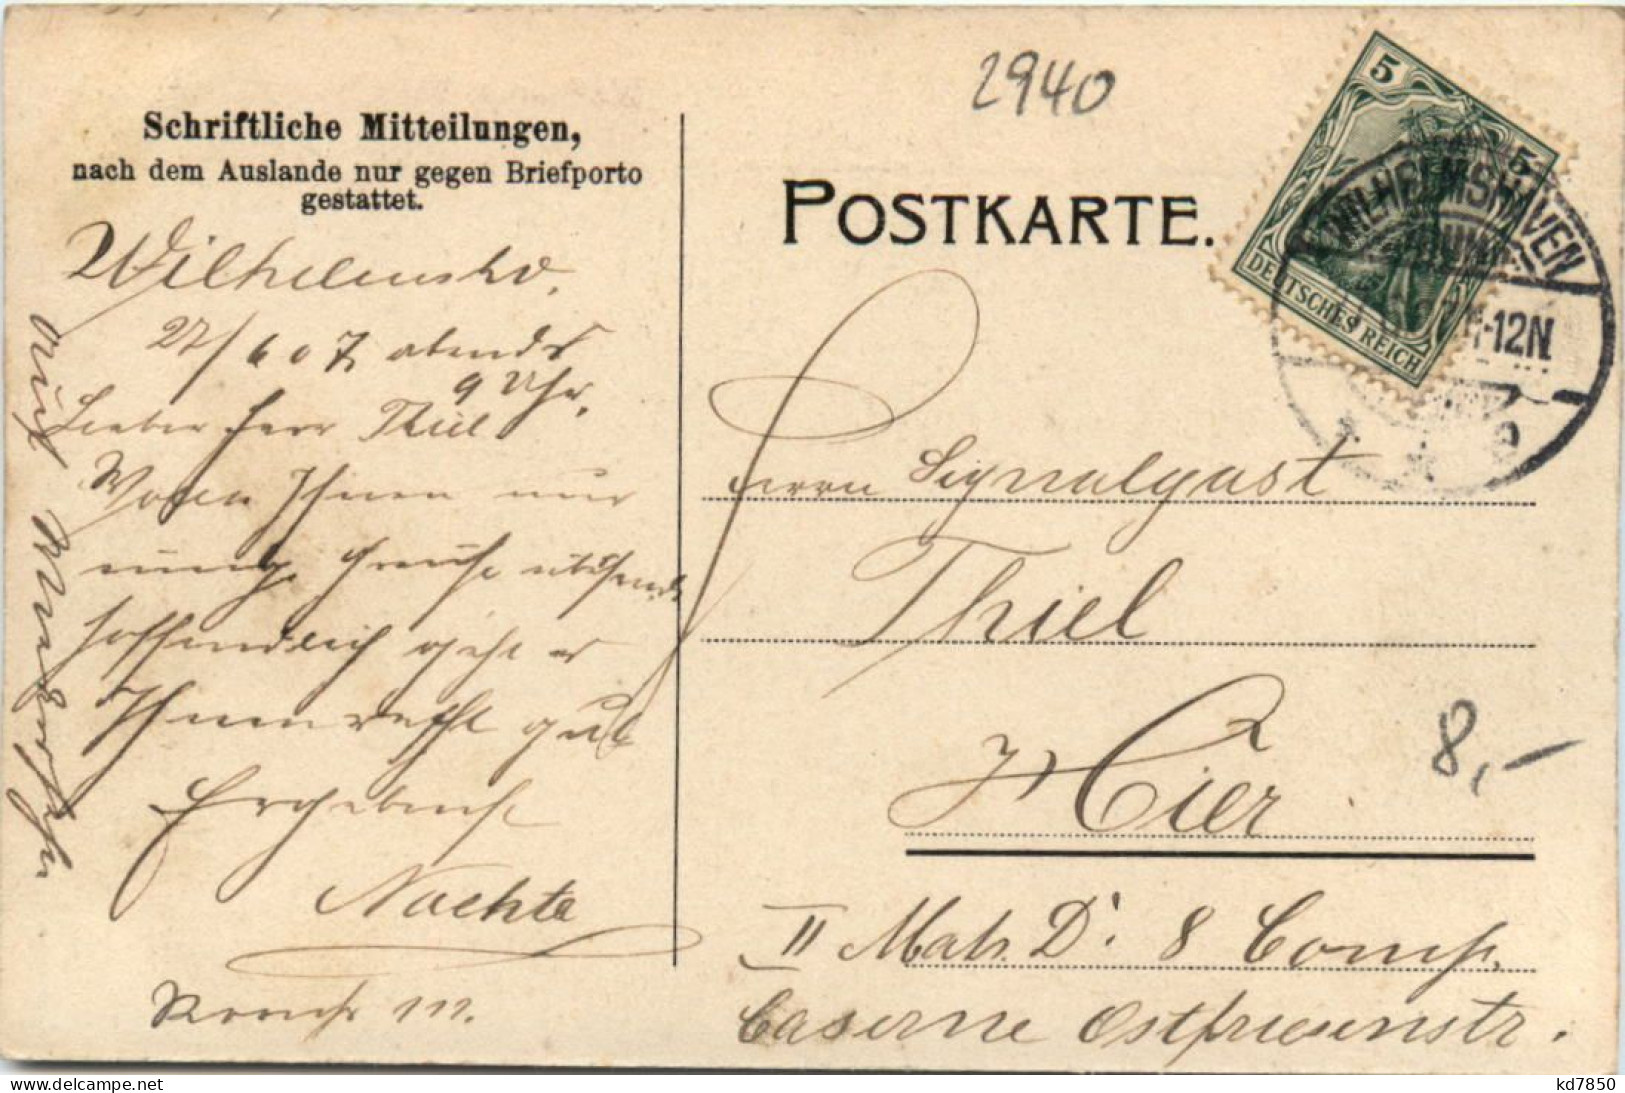 2940
Schriftliche Mitteilungen,
nach dem Auslande nur gegen Briefporto
gestattet.
POSTKARTE.
5
5
DEUTSCHES REICH
WILHELMSHAVEN
11-12N
Wilhelmshv.
27/6 07 abends
9 Uhr.
Lieber Herr Thiel
Ihnen nur
Grüße
hoffendlich geht es
Ihnen recht gut
Ergebenst
Nachte
auf Wiedersehn
Herrn Signalgast
Thiel
Hier
8,-
II Matr. D. 8 Comp.
Caserne Ostfriesenstr.
kd7850
www.delcampe.net